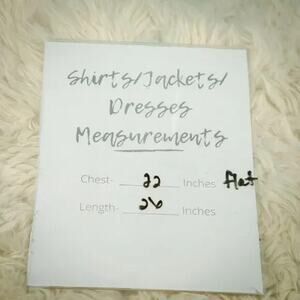 Shirts/Jackets/
Dresses
Measurements
Chest- 22 Inches flat
Length- 26 Inches